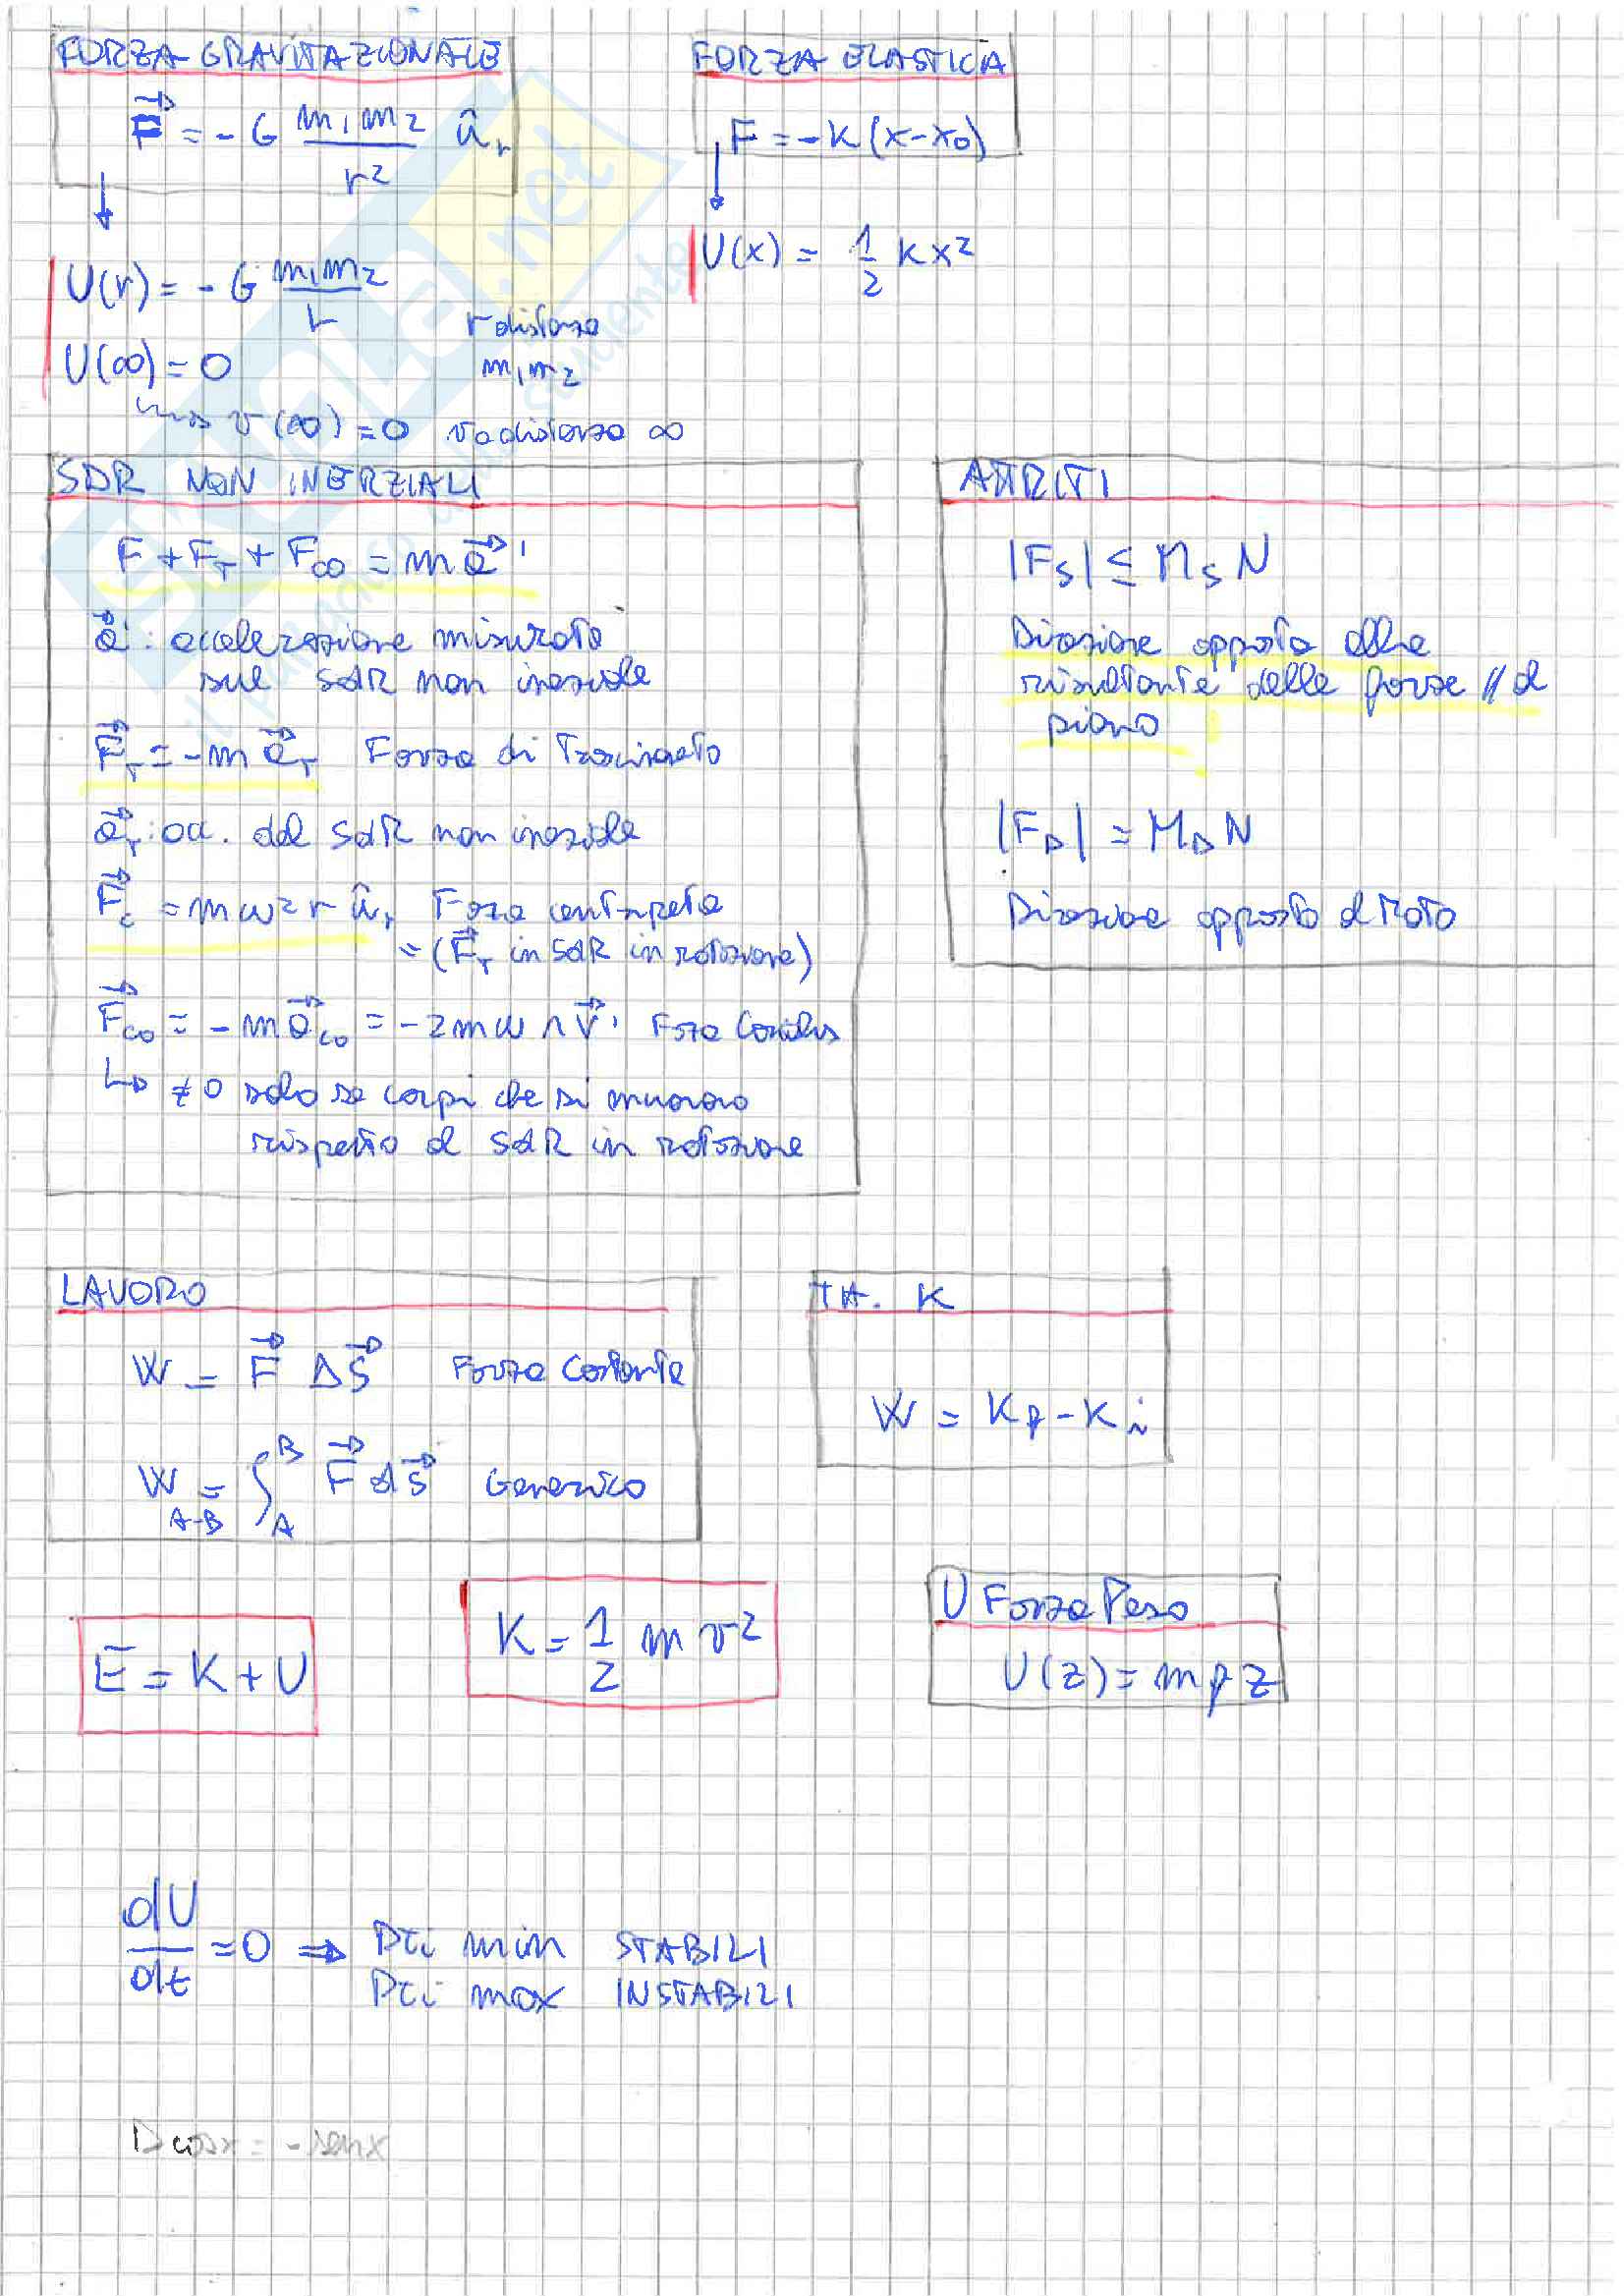 FORZA GRAVITAZIONALE
F = - G m1m2 / r² ûr
U(r) = - G m1m2 / r
r distanza
m1m2
U(∞) = 0
v(∞) = 0 va a distanza ∞
FORZA ELASTICA
F = -K(x-x0)
U(x) = 1/2 Kx²
SDR NON INERZIALI
F + FT + Fco = m a'
a': accelerazione misurata
sul SdR non inerziale
FT = -m aT Forza di Trascinato
aT: acc. del SdR non inerziale
Fc = mω²r ûr Forza centripeta
= (FT in SdR in rotazione)
Fco = -m aco = -2mω ∧ v' Forza Coriolis
↳ ≠0 solo se corpi che si muovono
rispetto al SdR in rotazione
ATTRITI
|FS| ≤ MS N
Direzione opposta alla
risultante delle forze // al
piano
|FD| = MD N
Direzione opposta al moto
LAVORO
W = F ΔS Forza Costante
W A-B = ∫A^B F dS Generico
TH. K
W = Kf - Ki
E = K + U
K = 1/2 mv²
U Forza Peso
U(z) = mgz
dU/dt = 0 ⇒ Pti min STABILI
Pti max INSTABILI
D cosx = -senx
skuola.net